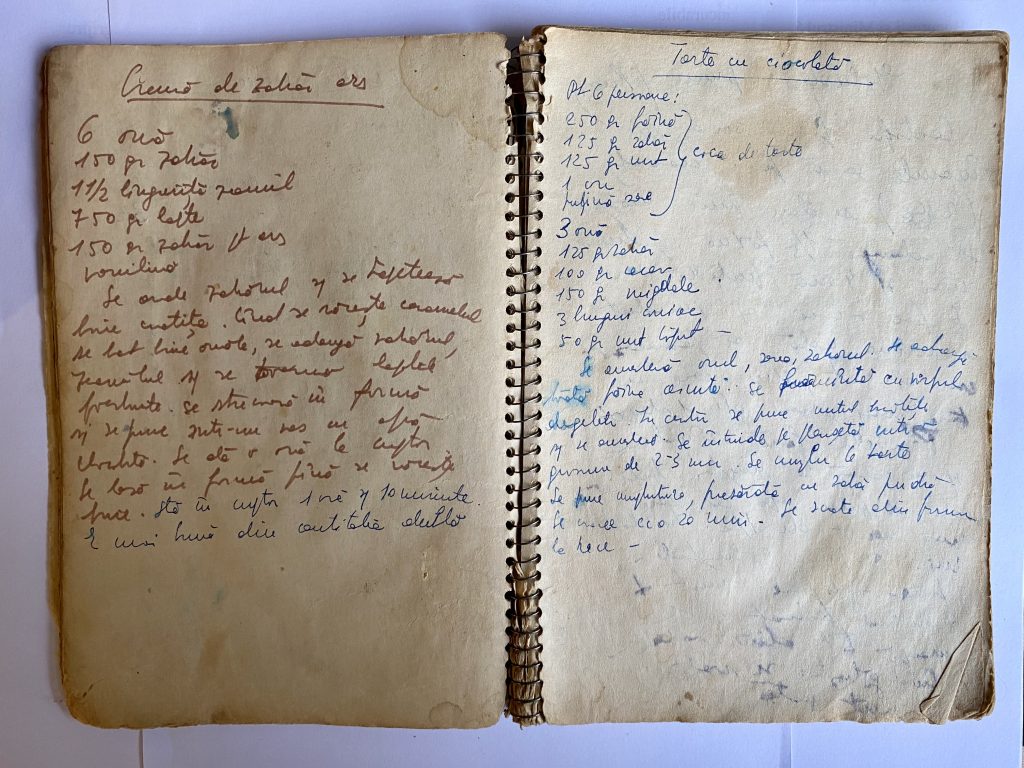 Cremă de zahăr ars
6 ouă
150 gr zahăr
1 1/2 linguriță zeamil
750 gr lapte
150 gr zahăr pt ars
vanilină
Se arde zahărul și se tapetează
bine cratița. Când se răcește caramelul
se bat bine ouăle, se adaugă zahărul,
zeamilul și se toarnă laptele
fierbinte. Se strecoară în formă
și se pune într-un vas cu apă
clocotită. Se dă o oră la cuptor
Se lasă în formă până se răcește
bine. Stă în cuptor 1 oră și 10 minute.
E mai bună din cantitatea dublă
Tarte cu ciocolată
Pt 6 persoane:
250 gr făină
125 gr zahăr
125 gr unt
1 ou
puțină sare
coca de tarte
3 ouă
125 gr zahăr
100 gr cacao
150 gr migdale
3 linguri coniac
50 gr unt topit -
Se amestecă oul, sarea, zahărul. Se adaugă
toată făina cernută. Se frământă cu vârful
degetelor. În centru se pune untul
și se amestecă. Se întinde pe planșetă într-o
grosime de 2-3 mm. Se umplu 6 tarte
Se pune umplutura, presărată cu zahăr pudră
Se coace cca 20 min - Se scoate din forme
la rece -